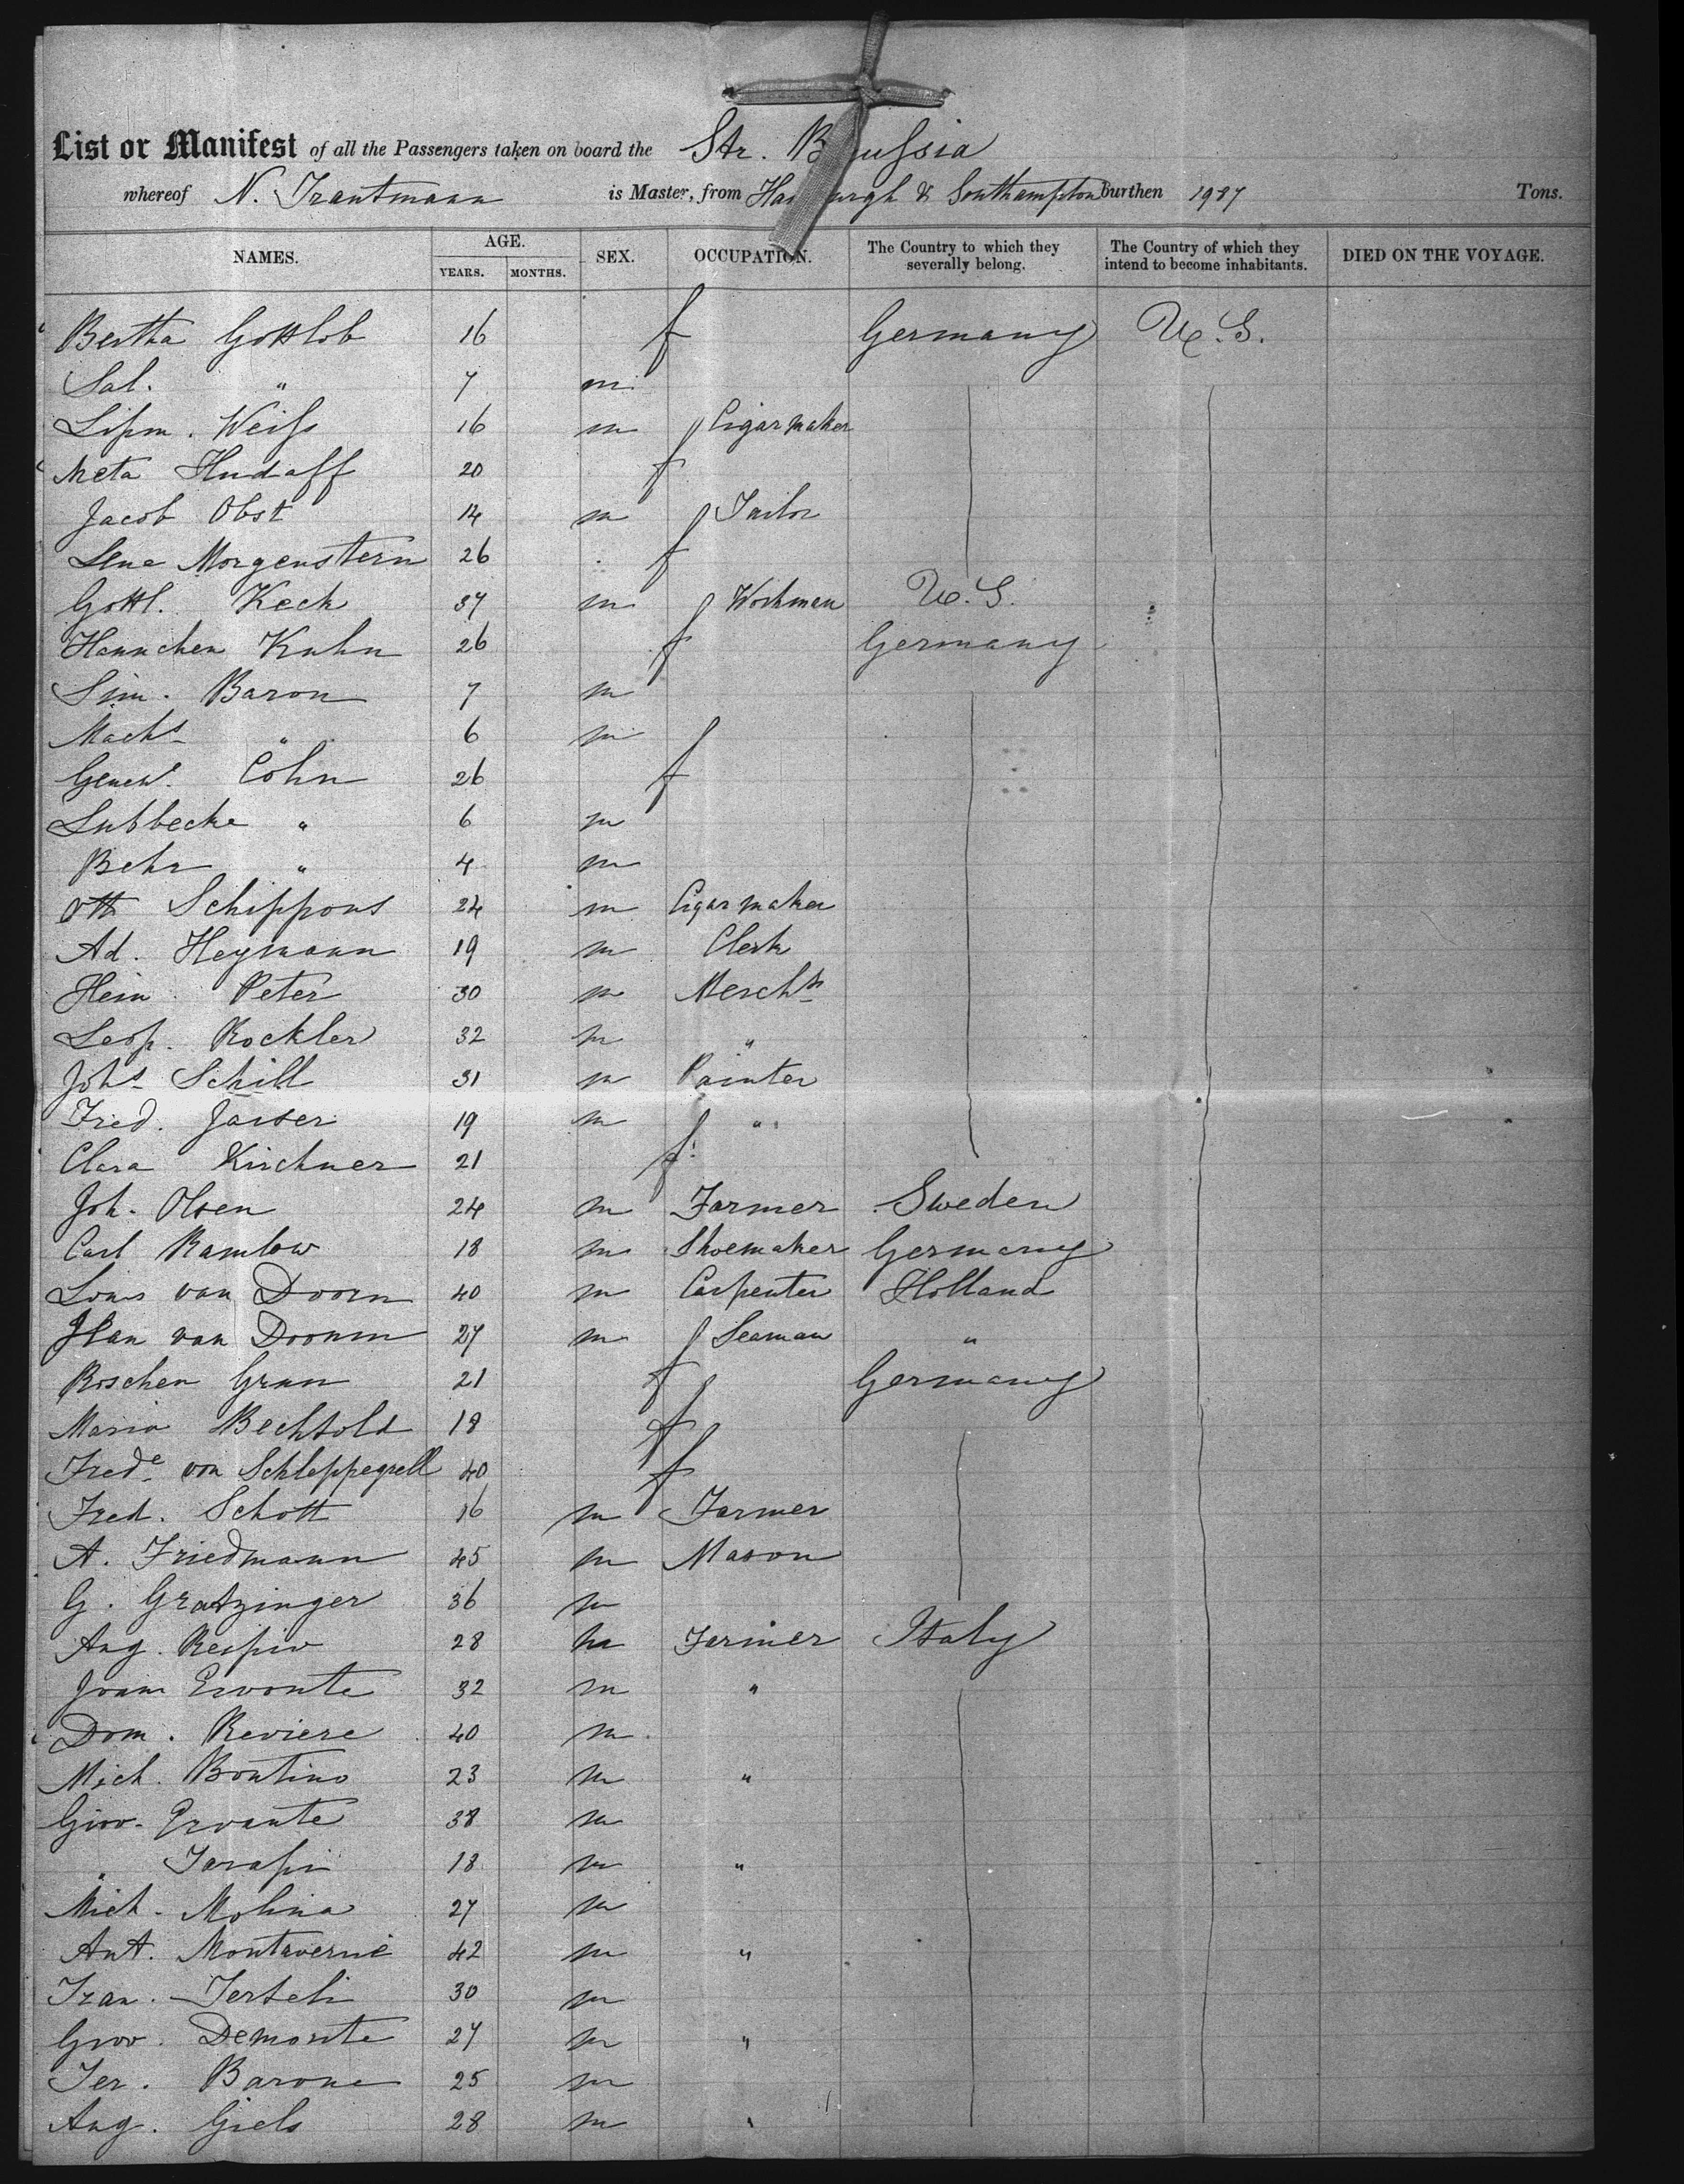 List or Manifest of all the Passengers taken on board the Str. B ussia
whereof N. Trautmann is Master, from Ha urgh & Southampton Burthen 1987 Tons.
NAMES. AGE. YEARS. MONTHS. SEX. OCCUPATION. The Country to which they severally belong. The Country of which they intend to become inhabitants. DIED ON THE VOYAGE.
Bertha Gottlob 16 f Germany U.S.
Sal. " 7 m
Lipm. Weiss 16 m Cigarmaker
Meta Hudaff 20 f
Jacob Obst 14 m Tailor
Lene Morgenstern 26 f
Gottl. Keck 37 m Workman U.S.
Hannchen Kuhn 26 f Germany
Sim. Baron 7 m
Machs " 6 m
Genew. Cohn 26 f
Lubbecke " 6 m
Behr " 4 m
Ott Schippons 24 m Cigarmaker
Ad. Heymann 19 m Clerk
Hein. Peter 30 m Mercht
Leop. Rockler 32 m "
Johs Schill 31 m Painter
Fred. Jaiser 19 m "
Clara Kirchner 21 f
Joh. Olsen 24 m Farmer Sweden
Carl Ramlow 18 m Shoemaker Germany
Louis van Doorn 40 m Carpenter Holland
van Doornm 27 m Seaman "
Roschen Grun 21 f Germany
Maria Bechtold 18 f
Frede von Schleppegrell 40 f
Fred. Schott 16 m Farmer
A. Friedmann 45 m Mason
G. Gratzinger 36 m
Aug. 28 m Farmer Italy
32 m "
Dom. Reviere 40 m
Mich. Bontino 23 m "
Giov. 38 m
" Tarapi 18 m "
Mich. Molina 27 m
Ant. Montaverne 42 m "
Fran. 30 m
Giov. Demonte 27 m "
Fer. Barone 25 m
Aug. Giels 28 m "